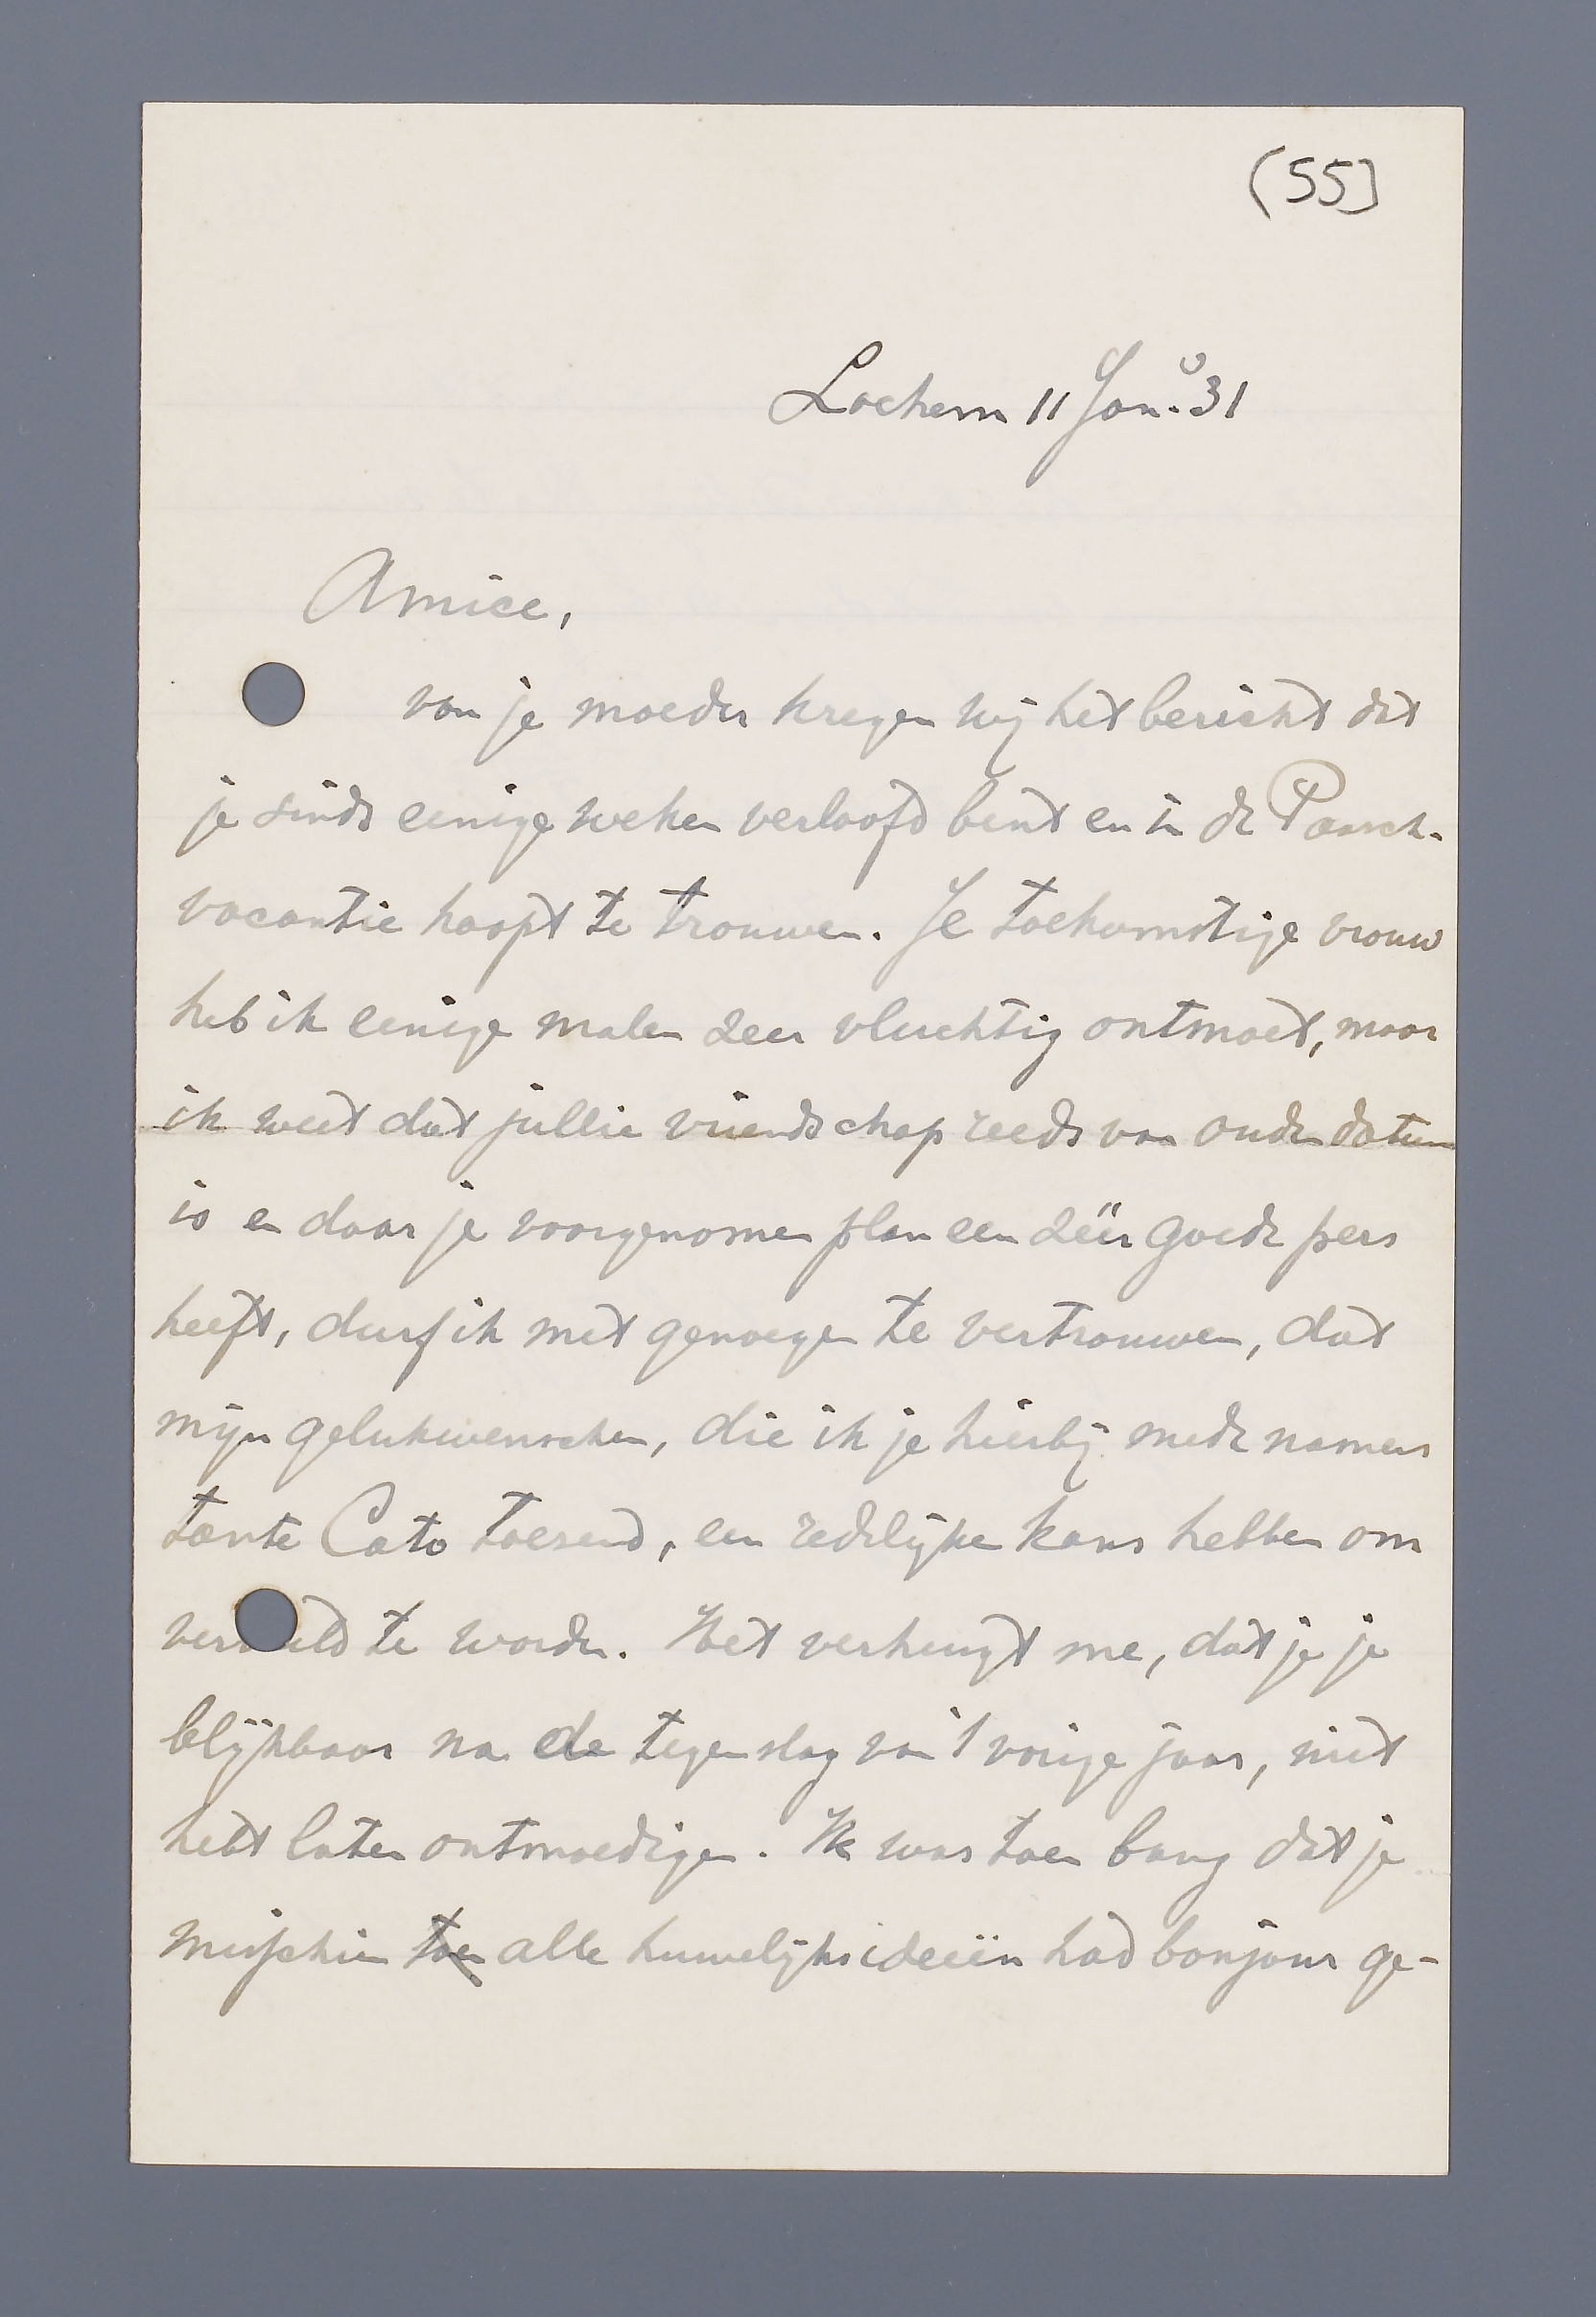 (55]
Lochem 11 Jan. 31
Amice,
van je moeder kregen wij het bericht dat
je sinds eenige weken verloofd bent en in de Paasch-
vacantie hoopt te trouwen. Je toekomstige vrouw
heb ik eenige malen zeer vluchtig ontmoet, maar
ik weet dat jullie vriendschap reeds van ouden datum
is en daar je voorgenomen plan een zéér goede pers
heeft, durf ik met genoegen te vertrouwen, dat
mijn gelukwenschen, die ik je hierbij mede namens
tante Cato toezend, een redelijke kans hebben om
vervuld te worden. Het verheugt me, dat je je
blijkbaar na de tegenslag van 't vorige jaar, niet
hebt laten ontmoedigen. Ik was toen bang dat je
misschien toen alle huwelijksideeën had bonjour ge-